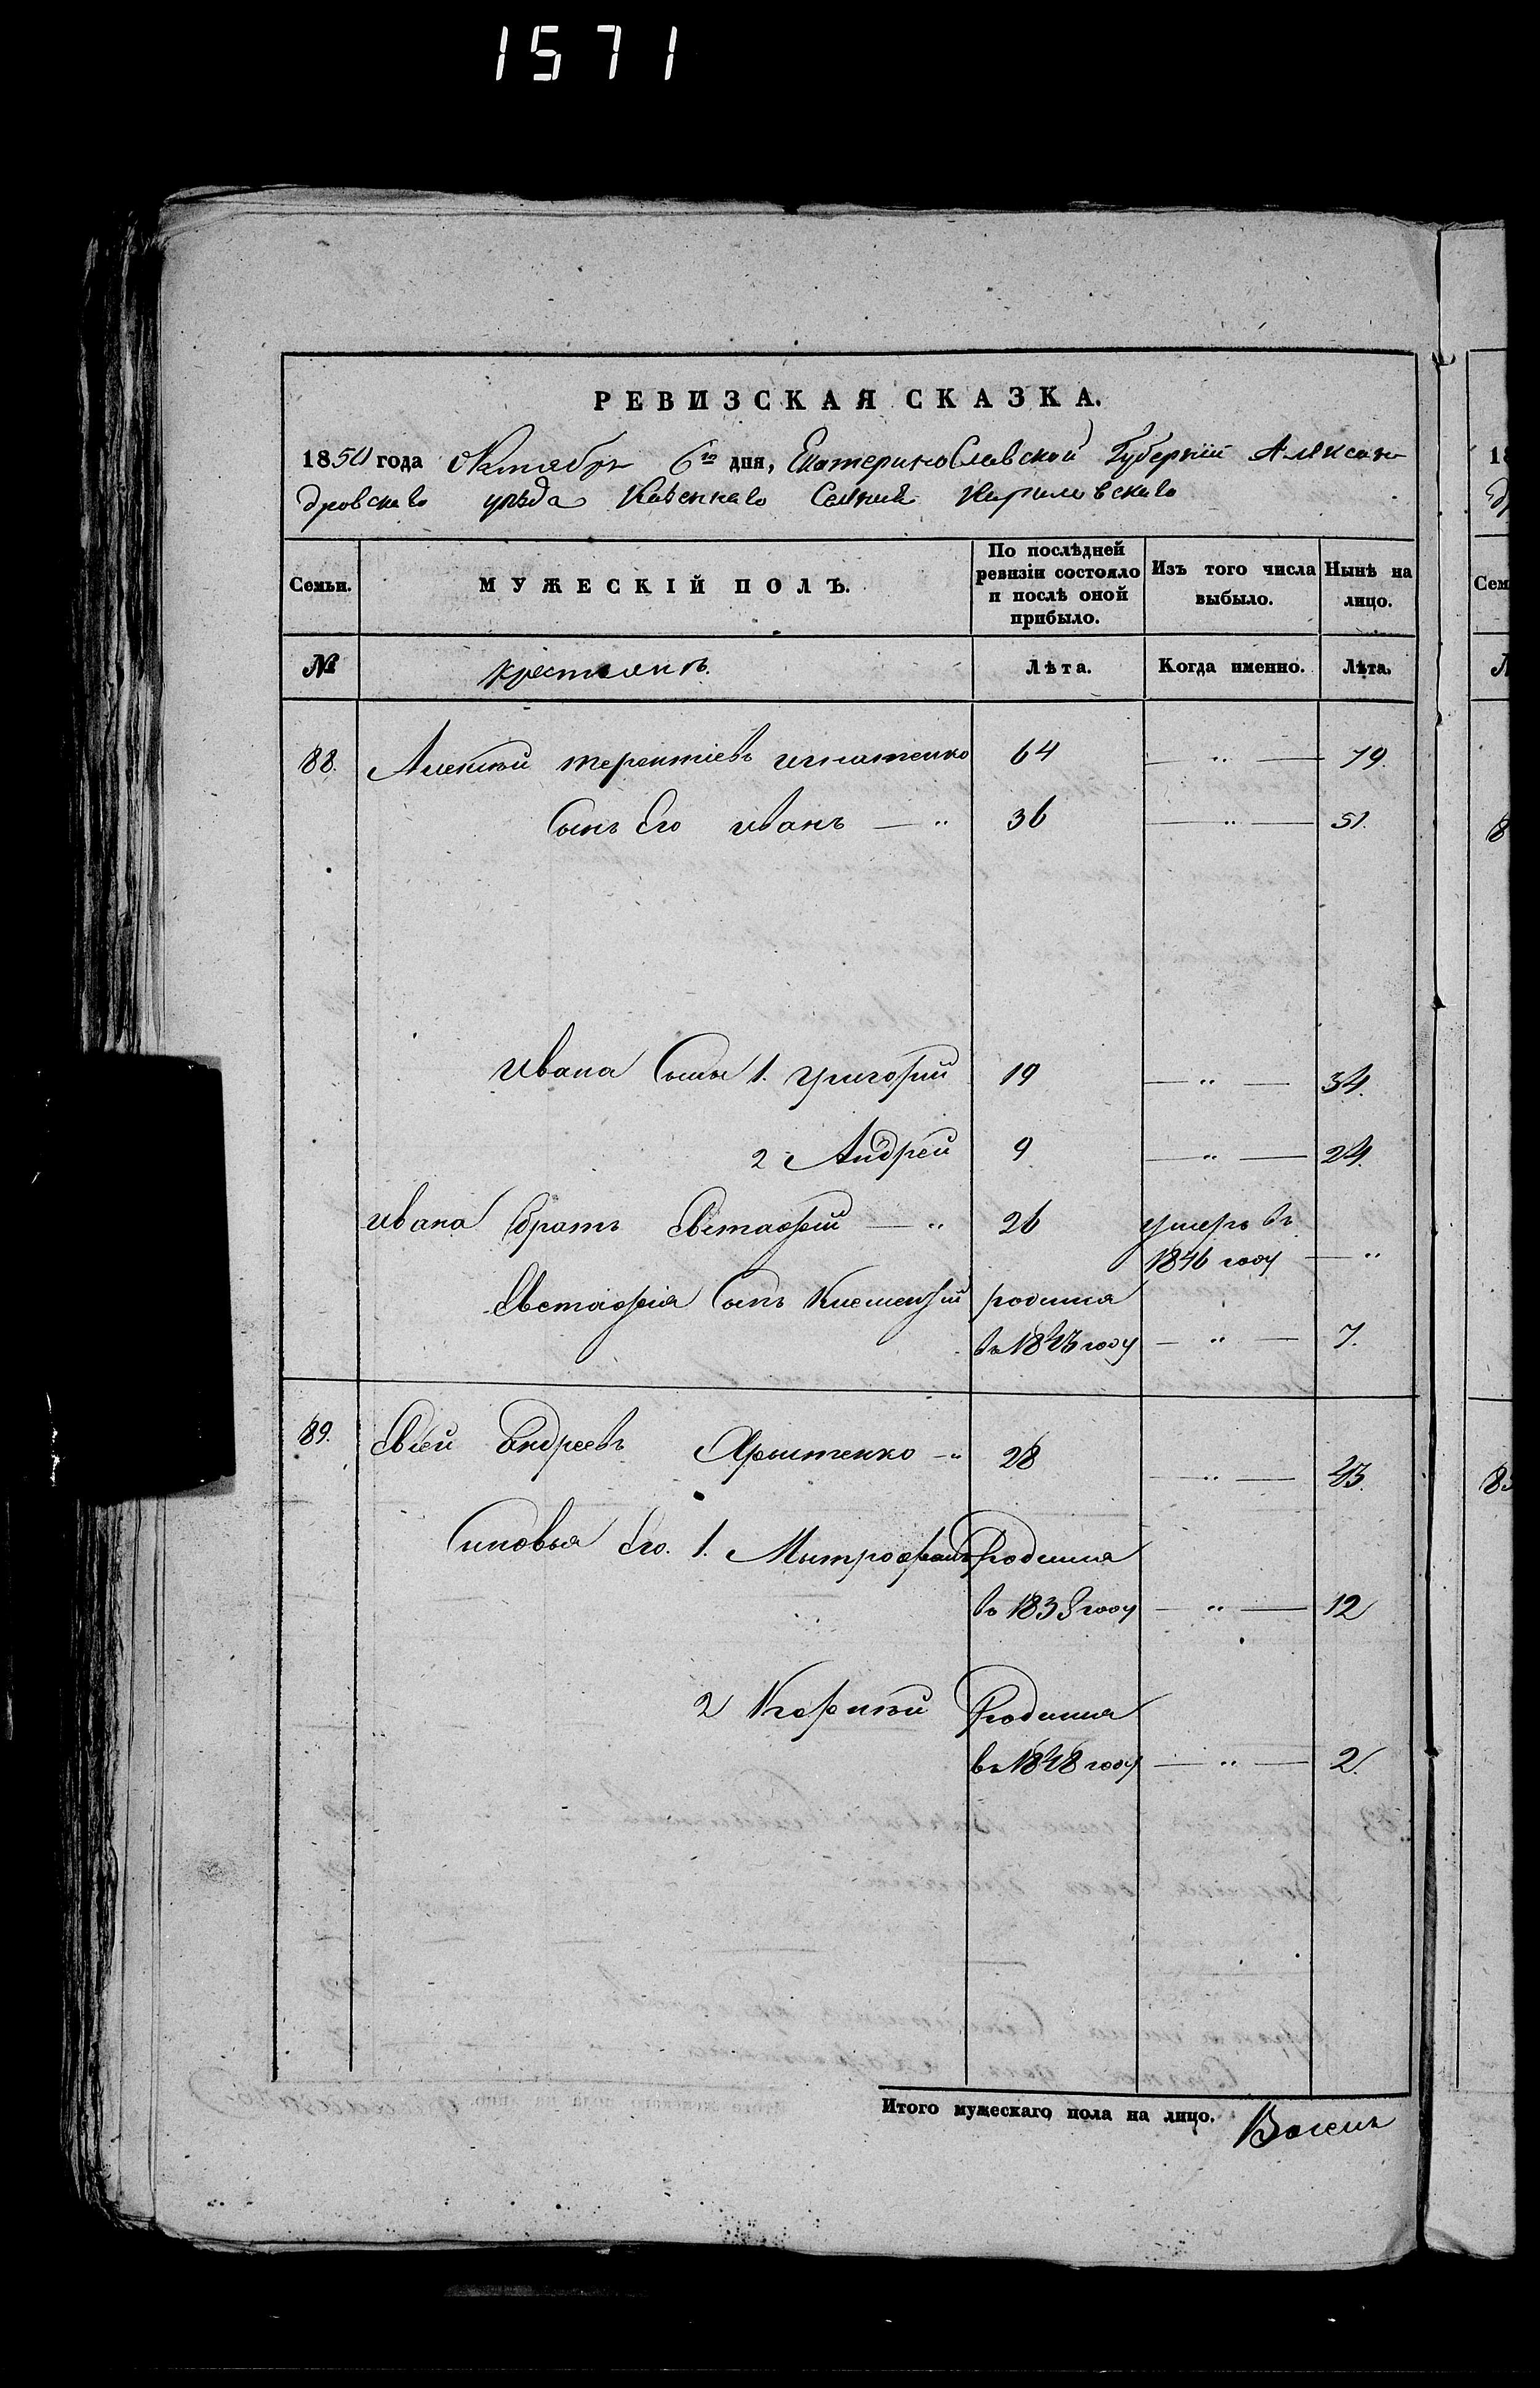 1571
РЕВИЗСКАЯ СКАЗКА.
1850 года Октября 6го дня, Екатеринославской Губерніи Алексан
дровскаго уѣзда Казеннаго Селенія Кириловскаго
Семьи. МУЖЕСКІЙ ПОЛЪ. По послѣдней ревизіи состояло и послѣ оной прибыло. Изъ того числа выбыло. Нынѣ на лицо.
№ крестьянъ. Лѣта. Когда именно. Лѣта.
88. Алексѣй терентіевъ игнатенко 64 — " — 79.
Сынъ Его иванъ — " 36 — " — 51.
Ивана Сыны 1. григорій 19 — " — 34.
2 Андрей 9 — " — 24.
ивана братъ Евстафій — " 26 умеръ въ
1846 году — "
Евстафія Сынъ Климентій родился
въ 1843 году — " — 7.
89. Евсей Андреевъ — " 28 — " — 43.
Сыновья Его. 1. Митрофанъ Родился
въ 1838 году — " — 12
2 Родился
въ 1848 году — " — 2.
Итого мужескаго пола на лицо. Восемь
18
Сем